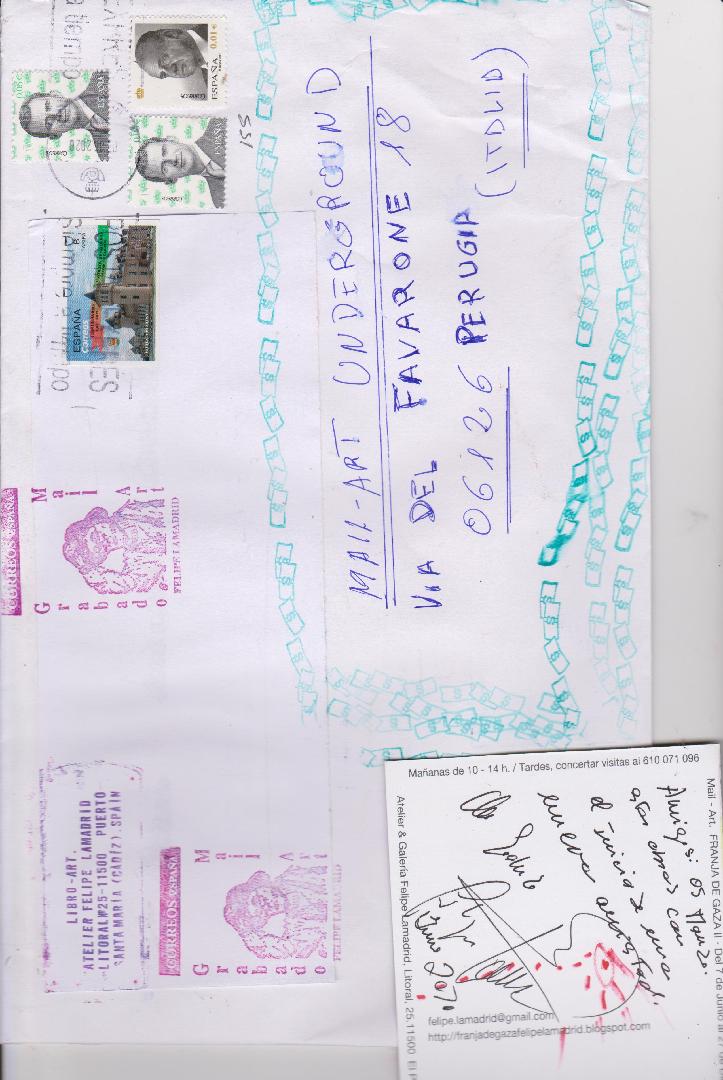 MAIL-ART UNDERGROUND
VIA DEL FAVARONE 18
06126 PERUGIA (ITALIA)
155
0,01€
ESPAÑA
Correos
ESPAÑA
Correos
ESPAÑA
ESPAÑA
Correos
CORREOS ESPAÑA
Mail Art
Grabado
FELIPE LAMADRID
LIBRO-ART.
ATELIER FELIPE LAMADRID
LITORAL Nº25-11500 PUERTO
SANTA MARÍA (CÁDIZ). SPAIN
CORREOS ESPAÑA
Mail Art
Grabado
FELIPE LAMADRID
Mañanas de 10 - 14 h. / Tardes, concertar visitas al 610 071 096
Mail - Art. FRANJA DE GAZA II - Del 7 de Junio al 27 de
Amigos: os
estas obras con
el inicio de una
nueva amistad.
Atelier & Galería Felipe Lamadrid, Litoral, 25.11500 El P
felipe.lamadrid@gmail.com
http://franjadegazafelipelamadrid.blogspot.com